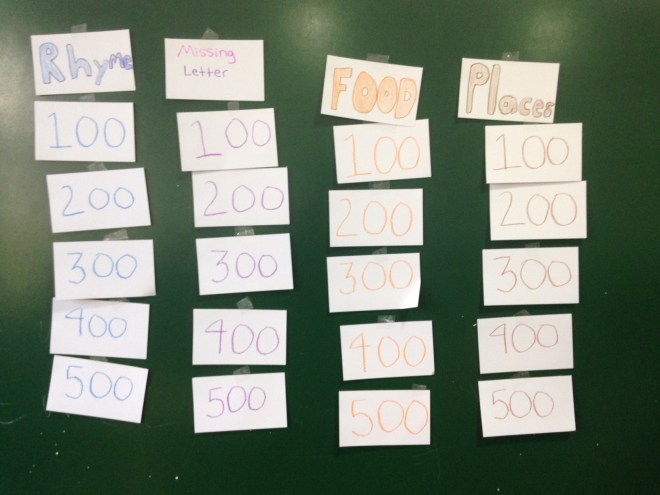 Rhyme
100
200
300
400
500
Missing
Letter
100
200
300
400
500
FOOD
100
200
300
400
500
Places
100
200
300
400
500